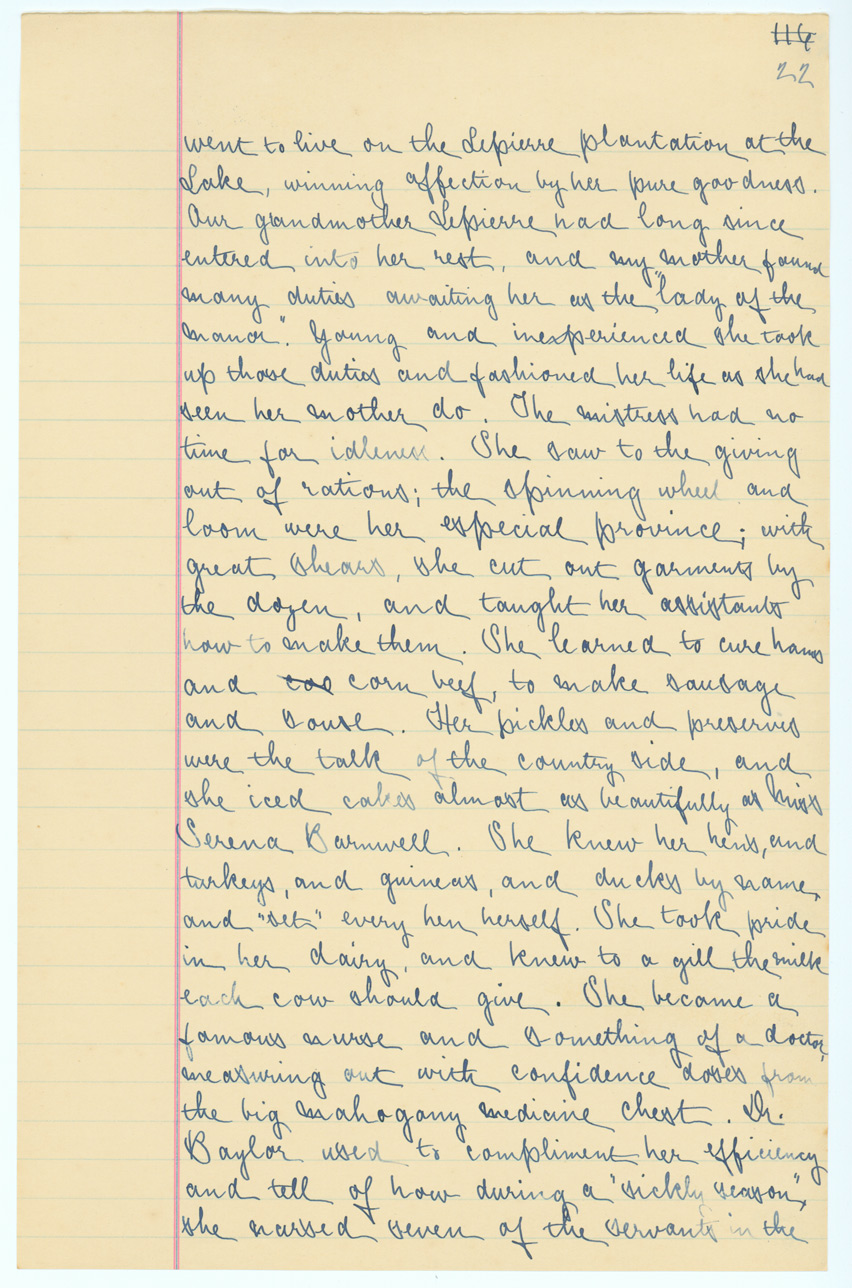 116
22
went to live on the Lepierre plantation at the
Lake, winning affection by her pure goodness.
Our grandmother Lepierre had long since
entered into her rest, and my mother found
many duties awaiting her as the "lady of the
manor". Young and inexperienced she took
up those duties and fashioned her life as she had
seen her mother do. The mistress had no
time for idleness. She saw to the giving
out of rations; the spinning wheel and
loom were her especial province; with
great shears, she cut out garments by
the dozen, and taught her assistants
how to make them. She learned to cure hams
and coo corn beef, to make sausage
and souse. Her pickles and preserves
were the talk of the country side, and
she iced cakes almost as beautifully as Miss
Serena Barnwell. She knew her hens, and
turkeys, and guineas, and ducks by name,
and "set" every hen herself. She took pride
in her dairy, and knew to a gill the milk
each cow should give. She became a
famous nurse and something of a doctor,
measuring out with confidence doses from
the big mahogany medicine chest. Dr.
Baylor used to compliment her efficiency
and tell of how during a "sickly season",
she nursed seven of the servants in the